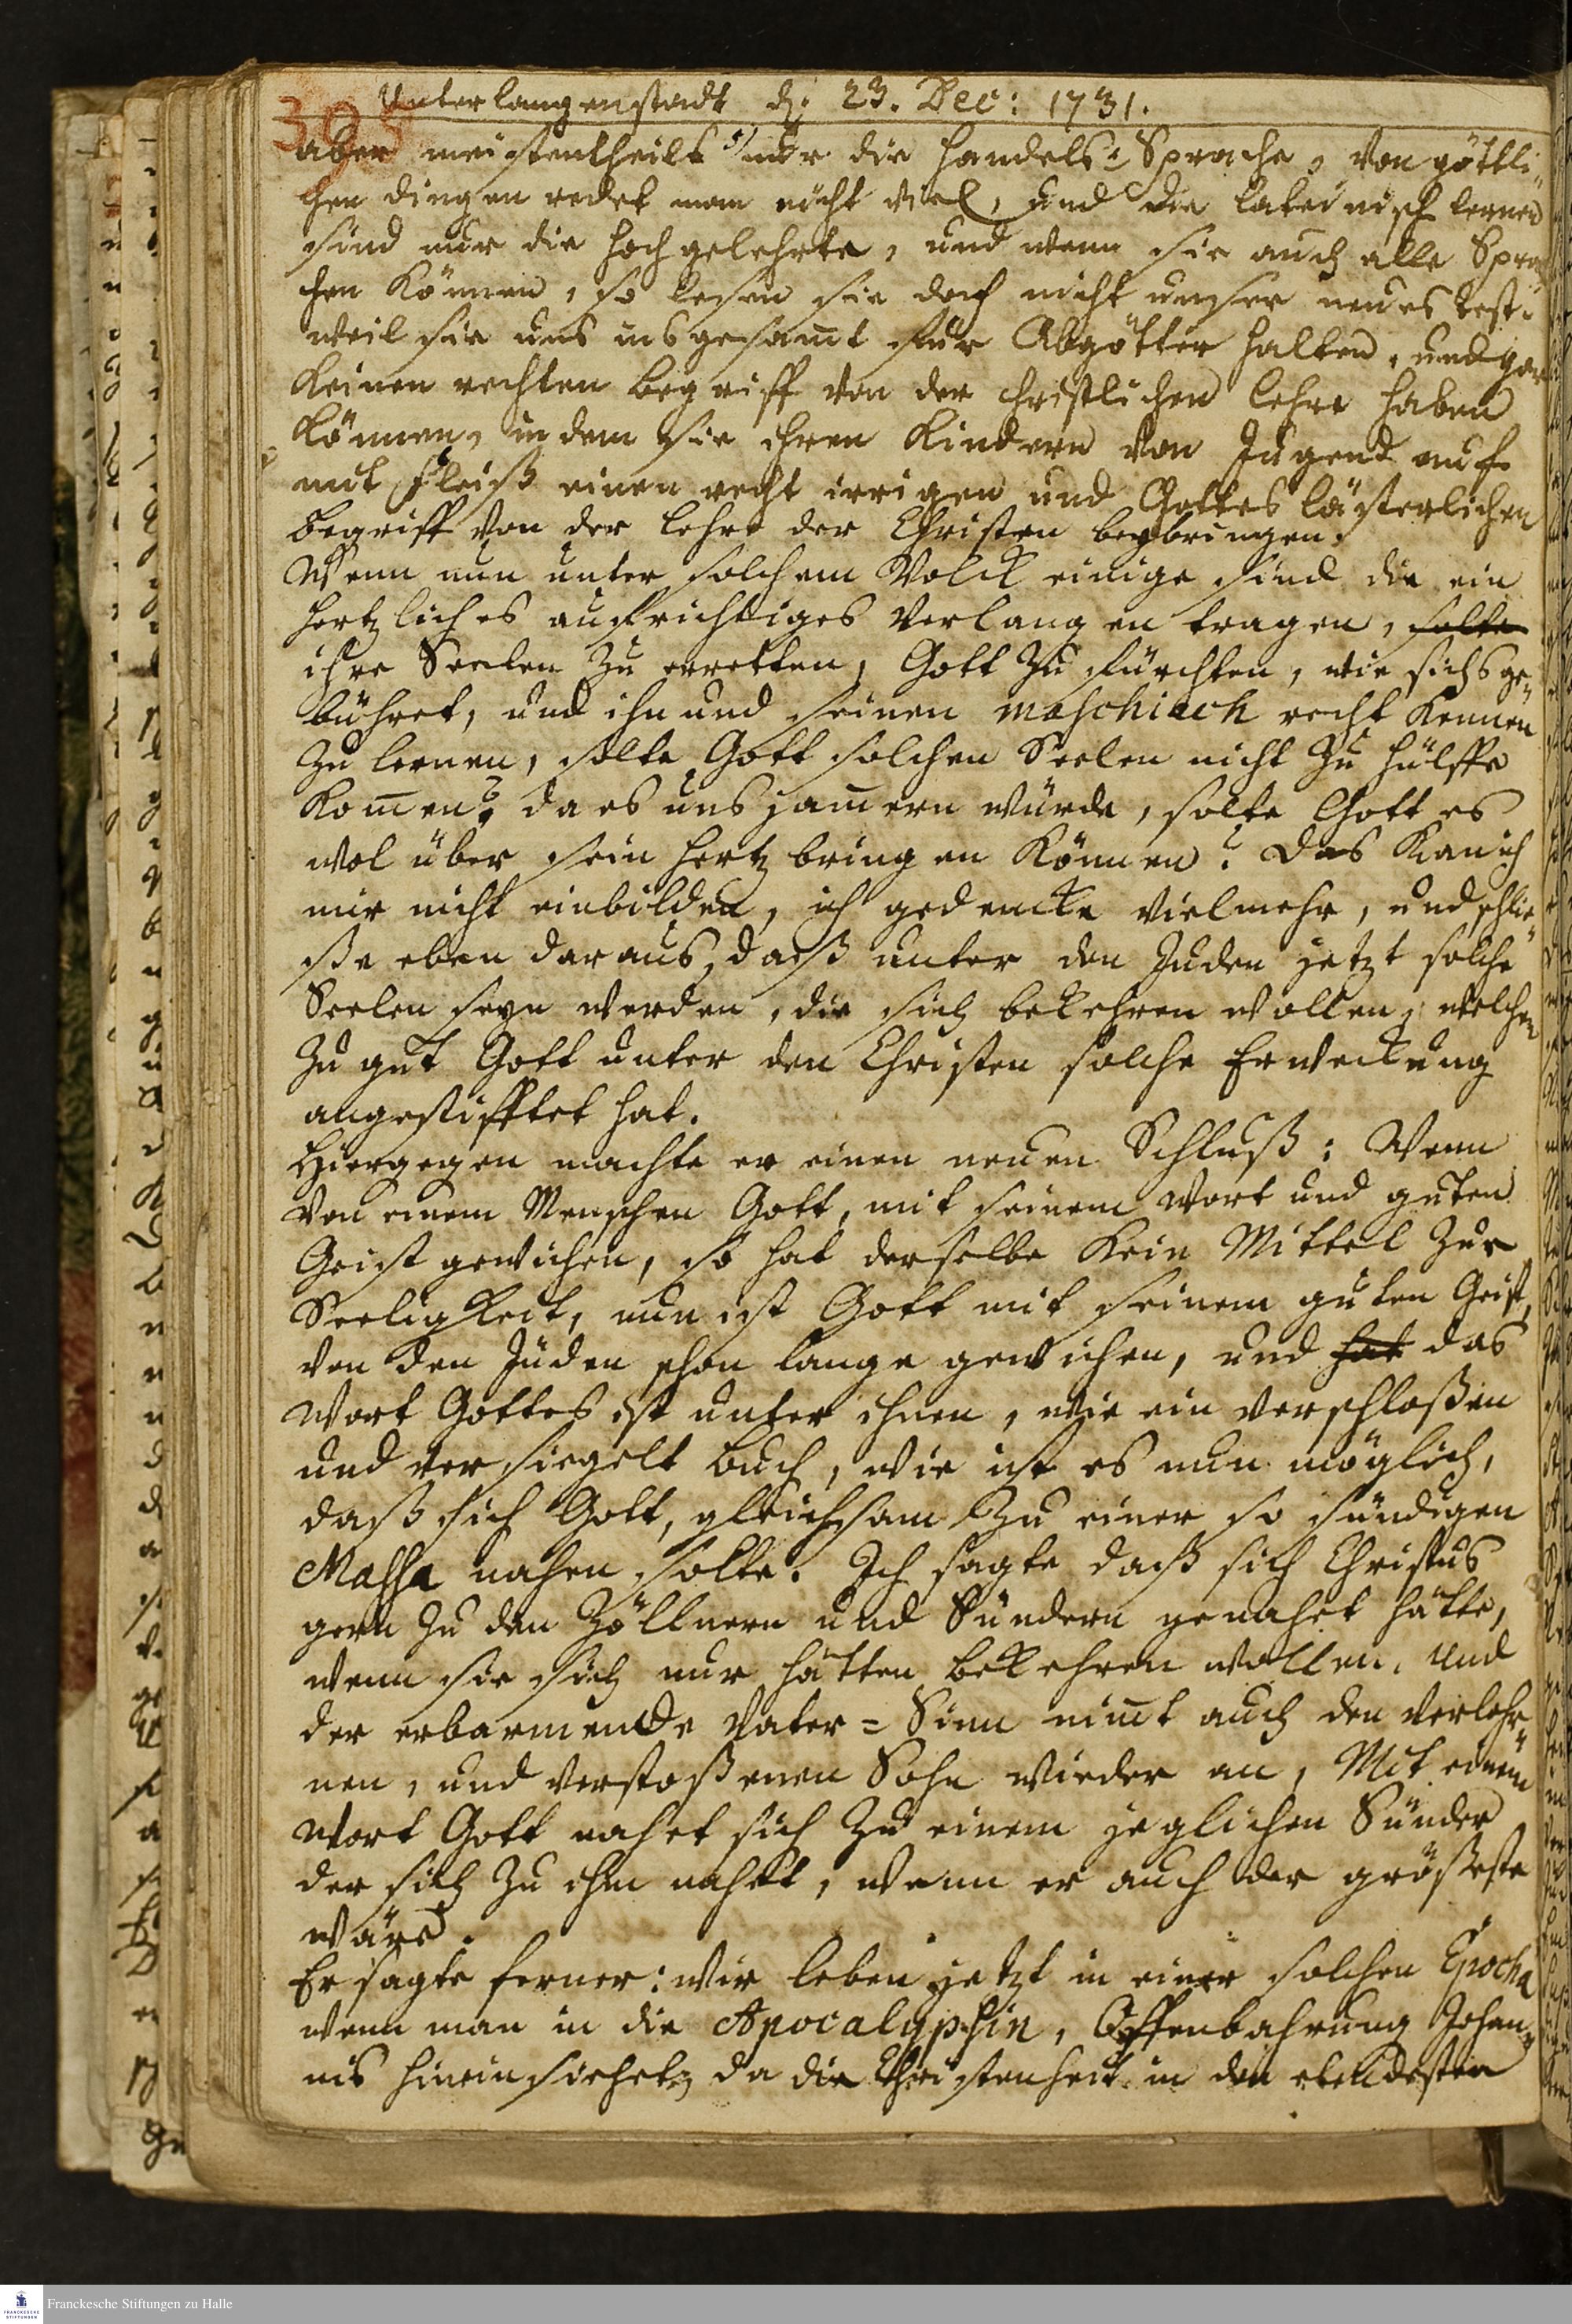 305
Unterlangenstadt d. 23. Dec: 1731.
aber meistentheils nur die Handels-Sprache, von göttli-
chen dingen redet man nicht viel, und die lateinisch lernen
sind nur die hochgelehrte, und wenn sie auch alle Spra-
chen können, so lesen sie doch nicht unser neues test:
weil sie uns insgesam̅t für Abgötter halten, und gar
keinen rechten begriff von der christlichen lehre haben
können, indem sie ihren Kindern von Jugend auf
mit fleiß einen recht irrigen und Gottes lästerlichen
begriff von der lehre der Christen beybringen.
Wenn nun unter solchem Volck einige sind die ein
hertzliches aufrichtiges verlangen tragen, solte
ihre Seelen zu erretten, Gott zu fürchten, wie sichs ge-
bühret, und ihn und seinen maschiach recht kennen
zu lernen, solte Gott solchen Seelen nicht zu hülffe
kom̅en? da es uns jam̅ern würde, solte Gott es
wol über sein hertz bringen können? das kan ich
mir nicht einbilden, ich gedencke vielmehr, und schlie-
ße eben daraus, daß unter den Juden jetzt solche
Seelen seyn werden, die sich bekehren wollen, welchen
zu gut Gott unter den Christen solche Erweckung
angestifftet hat.
Hiergegen machte er einen neuen Schluß: Wenn
von einem Menschen Gott, mit seinem Wort und guten
Geist gewichen, so hat derselbe kein Mittel zur
Seeligkeit, nun ist Gott mit seinem guten Geist,
von den Juden schon lange gewichen, und hat das
Wort Gottes ist unter ihnen, wie ein verschloßen
und versiegelt buch, wie ist es nun möglich,
daß sich Gott, gleichsam zu einer so sündigen
Massa nahen solte. Ich sagte daß sich Christus
gern zu den Zöllnern und Sündern genahet hätte,
wenn sie sich nur hätten bekehren wollen. Und
der erbarmende Vater-Sinn nim̅t auch den verlohr-
nen, und verstoßenen Sohn wieder an, Mit einem
Wort Gott nahet sich zu einem jeglichen Sünder
der sich zu ihm nahet, wenn er auch der größeste
wäre.
Er sagte ferner: wir leben jetzt in einer solchen Epocha
wenn man in die Apocalypsin, Offenbahrung Johan-
nis hineinsiehet, da die Christenheit in den elendesten
Franckesche Stiftungen zu Halle